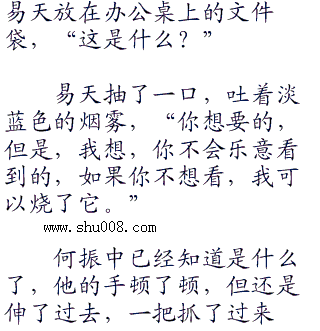 易天放在办公桌上的文件
袋，“这是什么？”
易天抽了一口，吐着淡
蓝色的烟雾，“你想要的，
但是，我想，你不会乐意看
到的，如果你不想看，我可
以烧了它。”
www.shu008.com
何振中已经知道是什么
了，他的手顿了顿，但还是
伸了过去，一把抓了过来